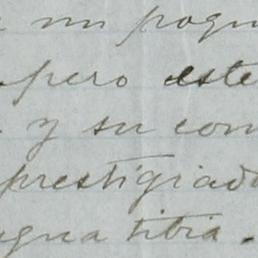 un poqu
pero este
y su com
prestigiad
agua tibia.